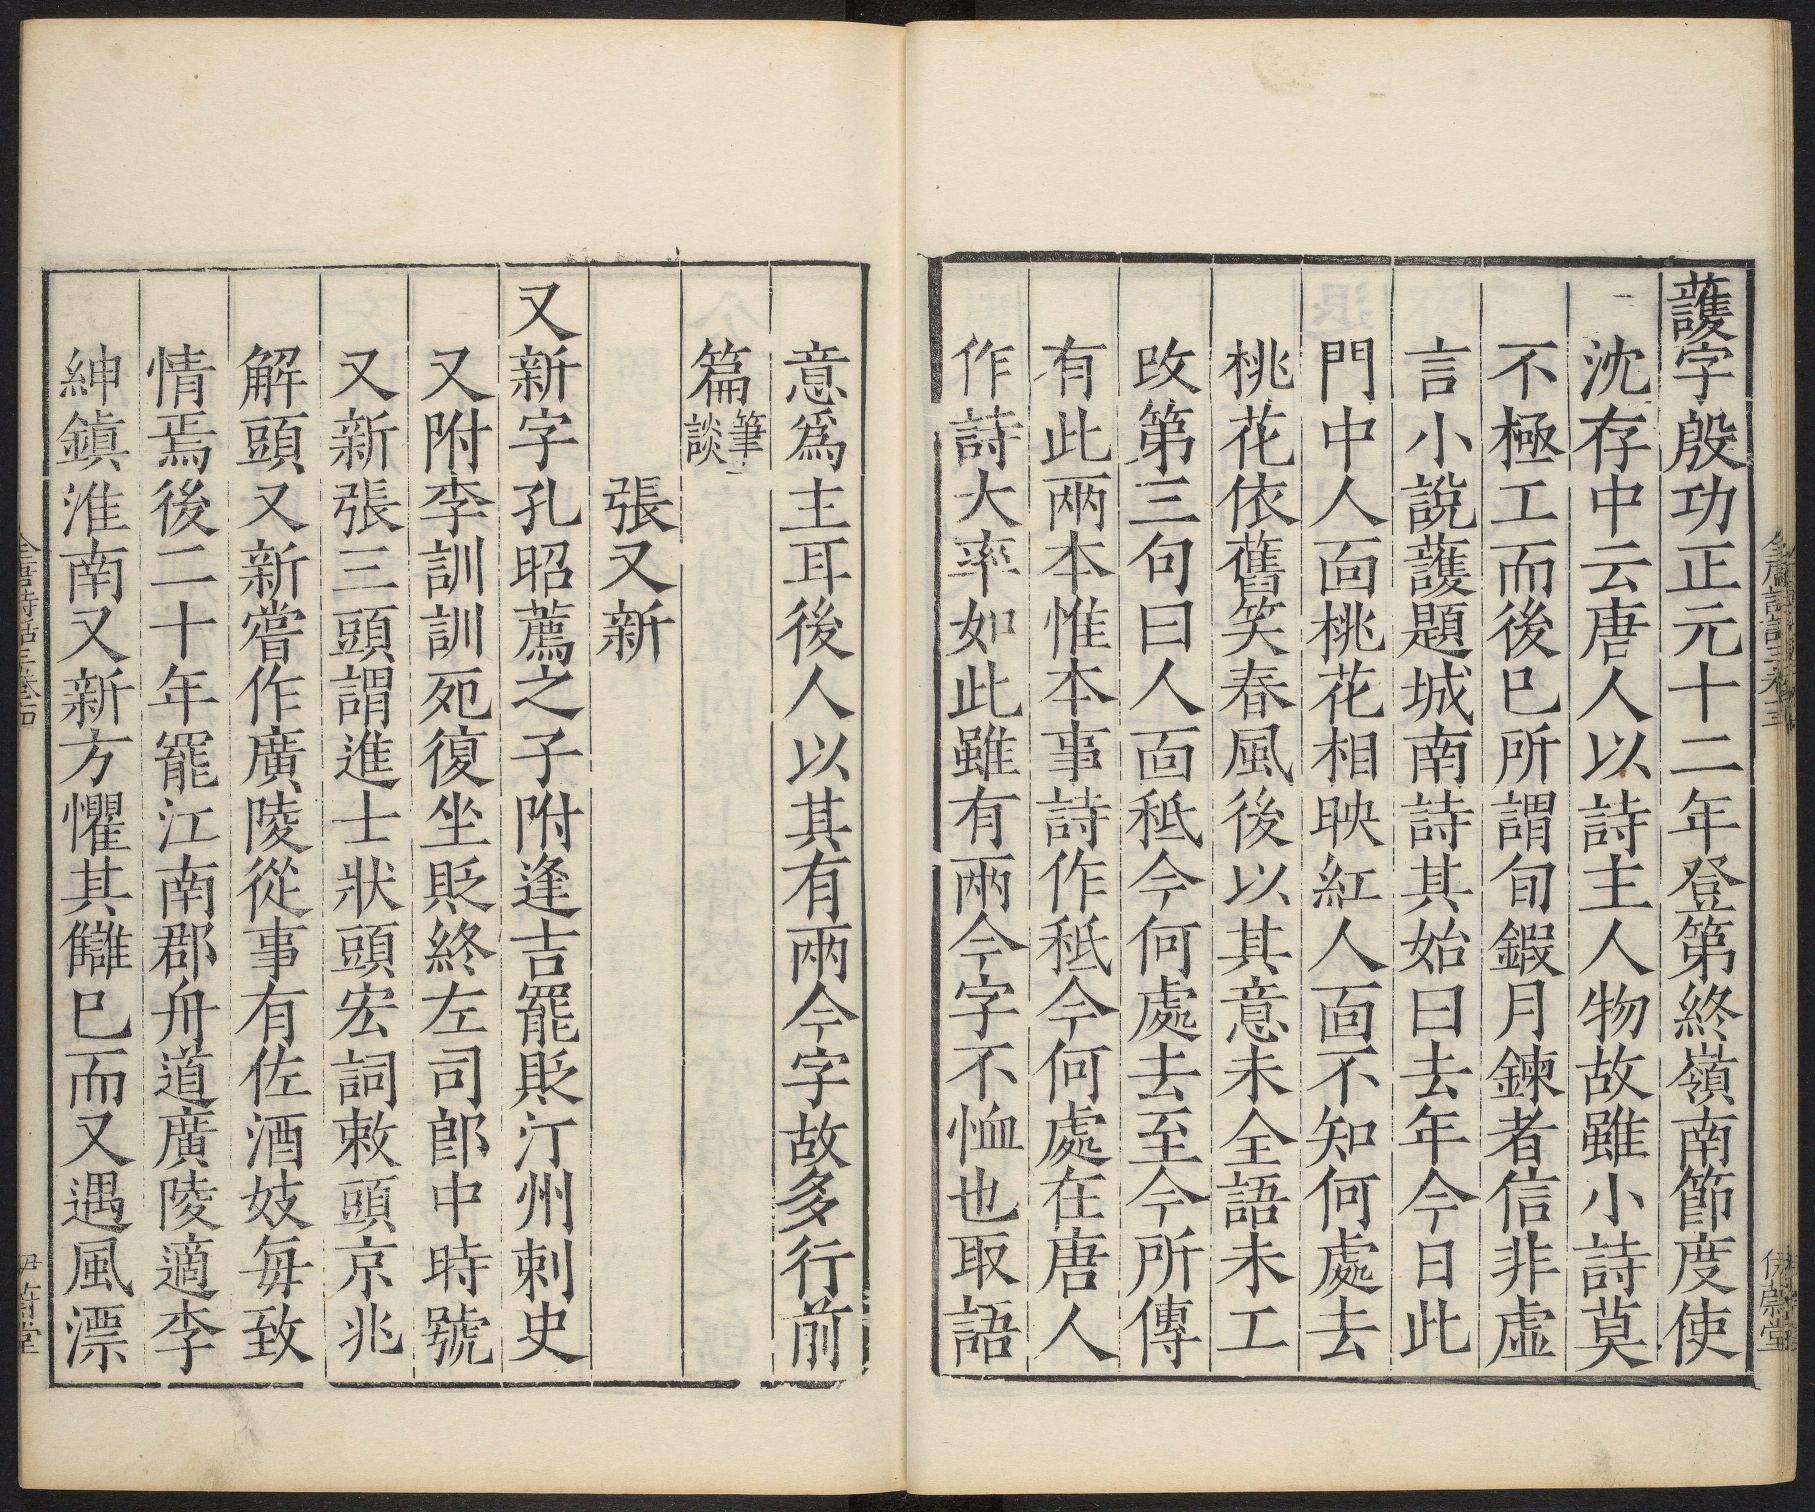 蠖字殷功正元十二年登第終嶺南節度使
沈存中云唐人以詩主人物故雖小詩莫
不極工而後已所謂旬鍜月鍊者信非虛
言小說蠖題城南詩其始曰去年今日此
門中人面桃花相映紅人面不知何處去
桃花依舊笑春風後以其意未全語未工
改第三句曰人面秪今何處去至今所傳
有此兩本惟本事詩作秪今何處在唐人
作詩大率如此雖有兩今字不恤也取語
意爲主耳後人以其有兩今字故多行前
篇筆談
張又新
又新字孔昭薦之子附逢吉罷貶汀州刺史
又附李訓訓死復坐貶終左司郎中時號
又新張三頭謂進士狀頭宏詞敕頭京兆
解頭又新嘗作廣陵從事有佐酒妓每致
情焉後二十年罷江南郡舟道廣陵適李
紳鎮淮南又新方懼其讎已而又遇風漂